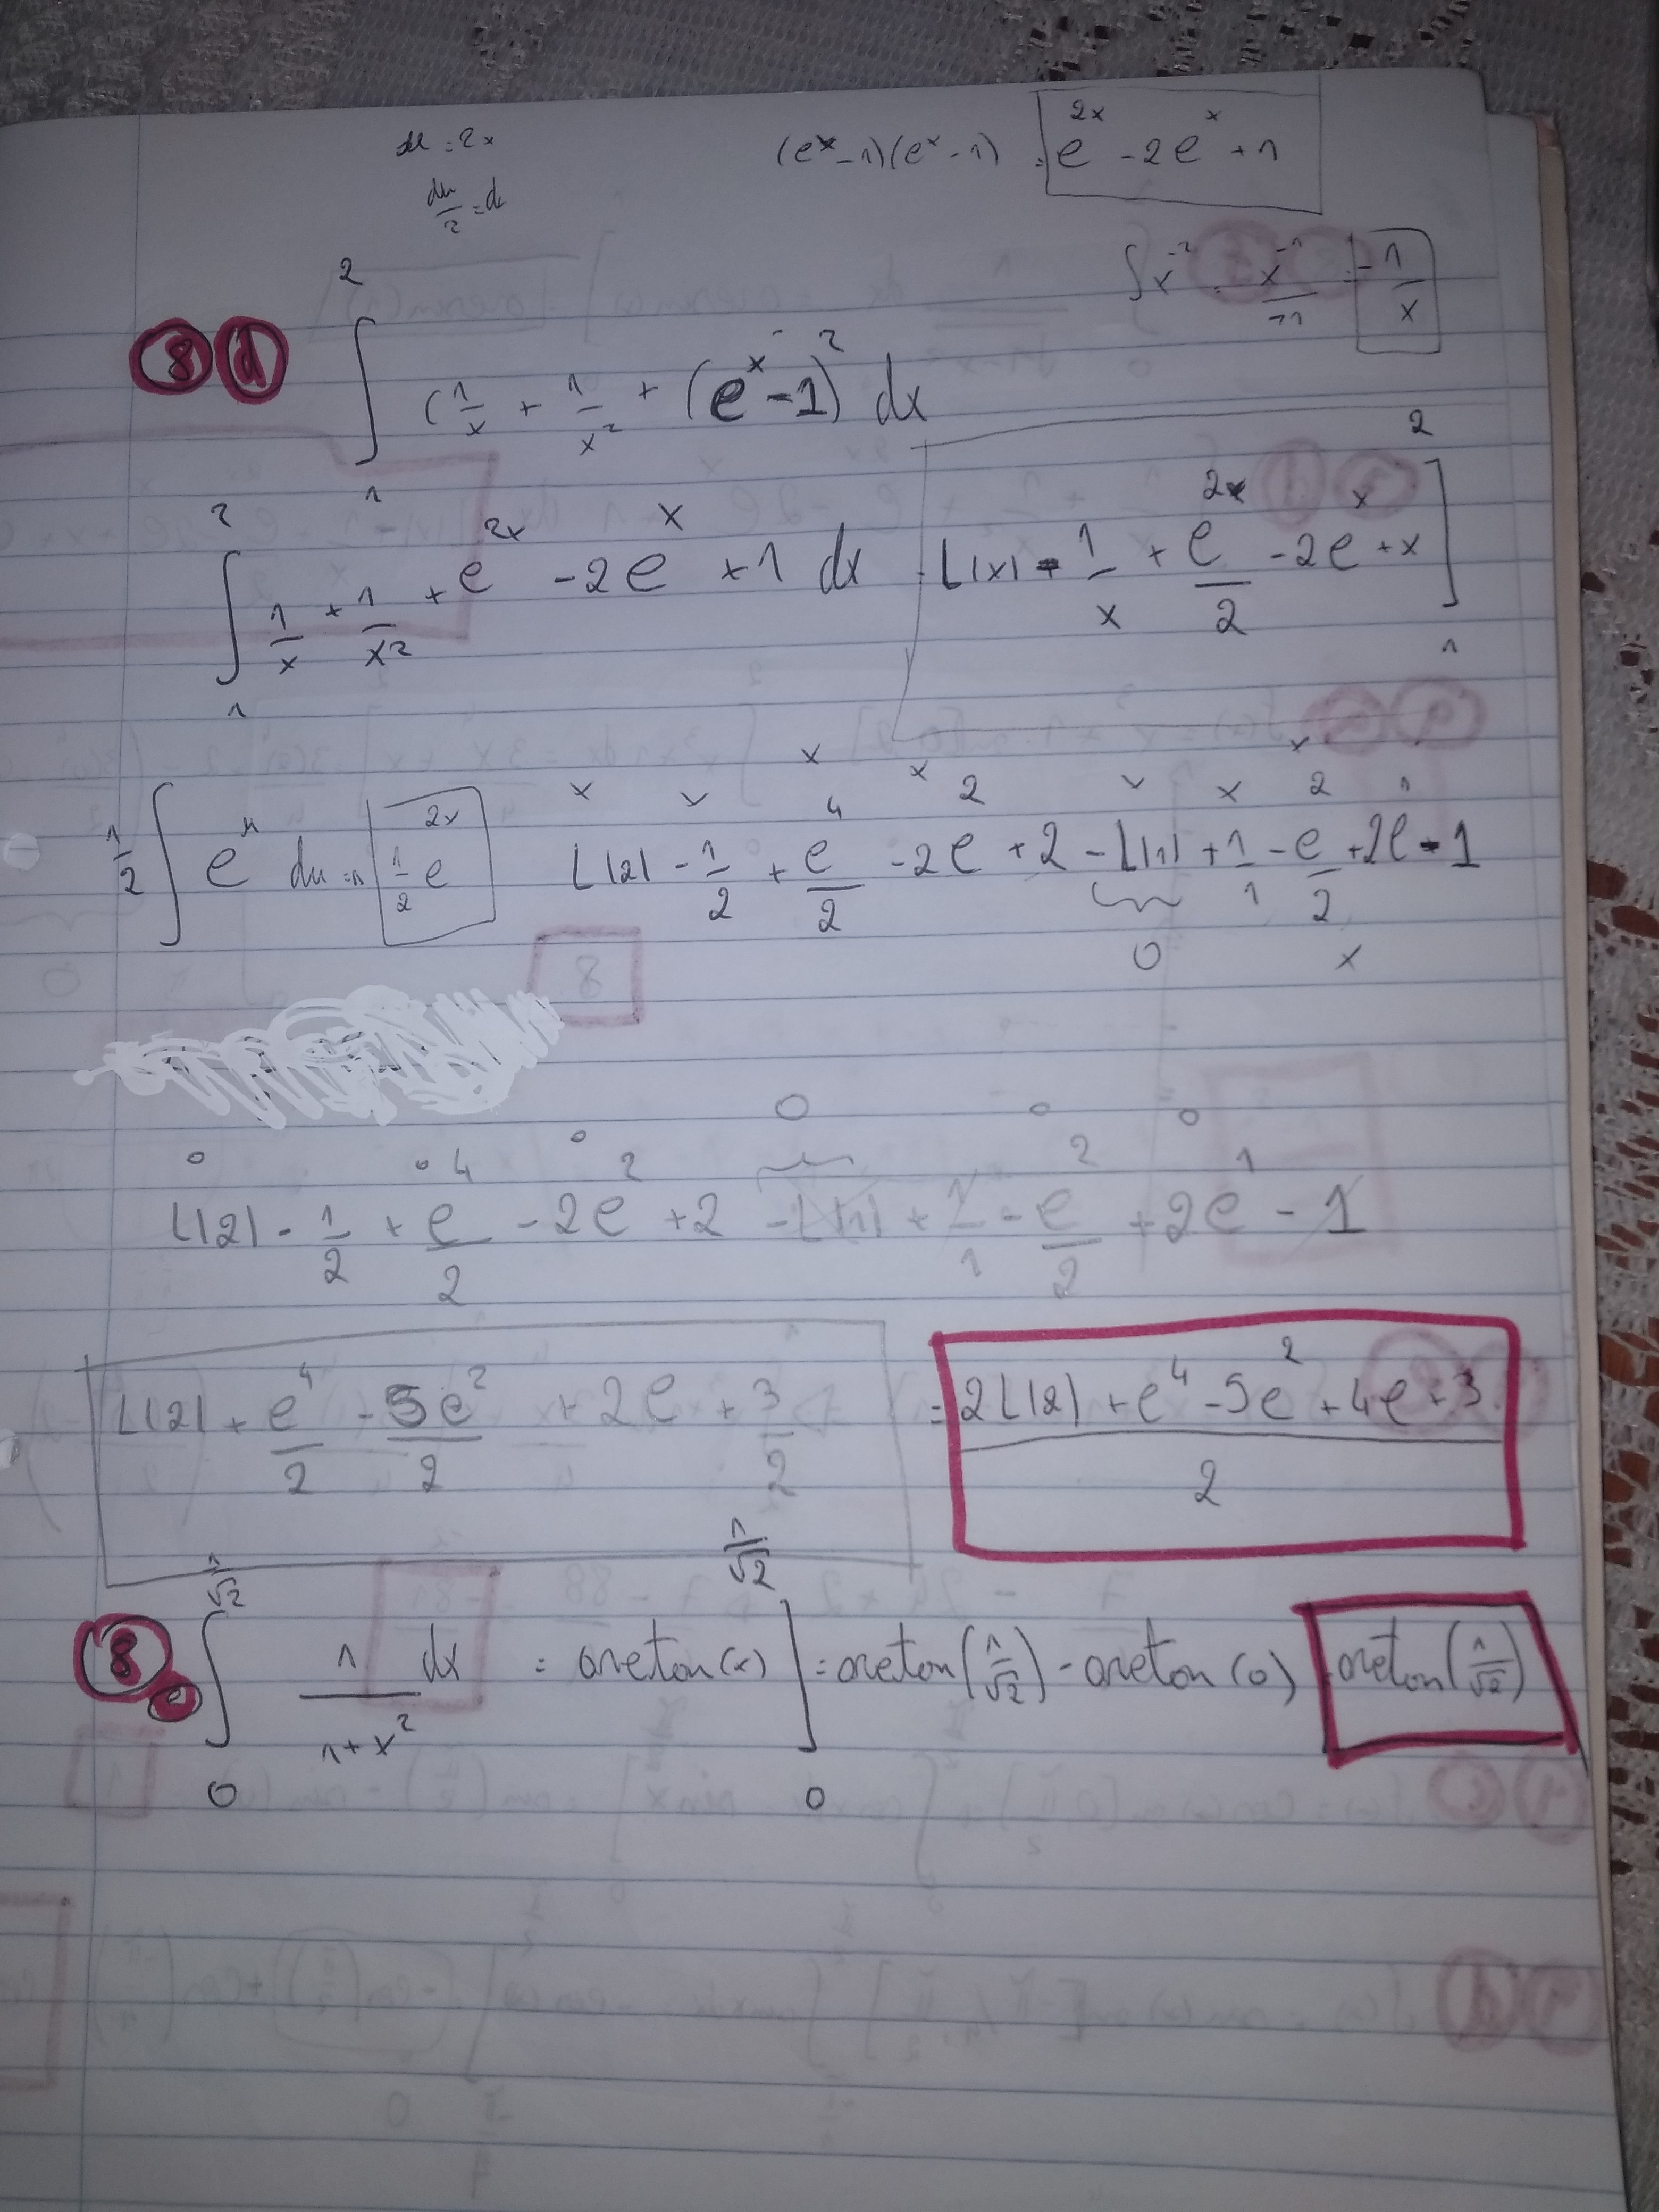 u = 2x (e^x - 1)(e^x - 1) = e^{2x} - 2e^x + 1
du/2 = dx
∫x^{-2} = x^{-1}/-1 = -1/x
8 d ∫_1^2 (1/x + 1/x^2 + (e^x - 1)^2 dx
∫_1^2 1/x + 1/x^2 + e^{2x} - 2e^x + 1 dx = L|x| - 1/x + e^{2x}/2 - 2e^x + x ]_1^2
1/2 ∫ e^u du = 1/2 e^{2x} L|2| - 1/2 + e^4/2 - 2e^2 + 2 - L|1| + 1/1 - e^2/2 + 2e^1 - 1
0
0
L|2| - 1/2 + e^4/2 - 2e^2 + 2 - L|1| + 1/1 - e^2/2 + 2e^1 - 1
L|2| + e^4/2 - 5e^2/2 + 2e + 3/2 = 2L|2| + e^4 - 5e^2 + 4e + 3 / 2
8 e ∫_0^{1/√2} 1/(1+x^2) dx = arctan(x) ]_0^{1/√2} = arctan(1/√2) - arctan(0) = arctan(1/√2)